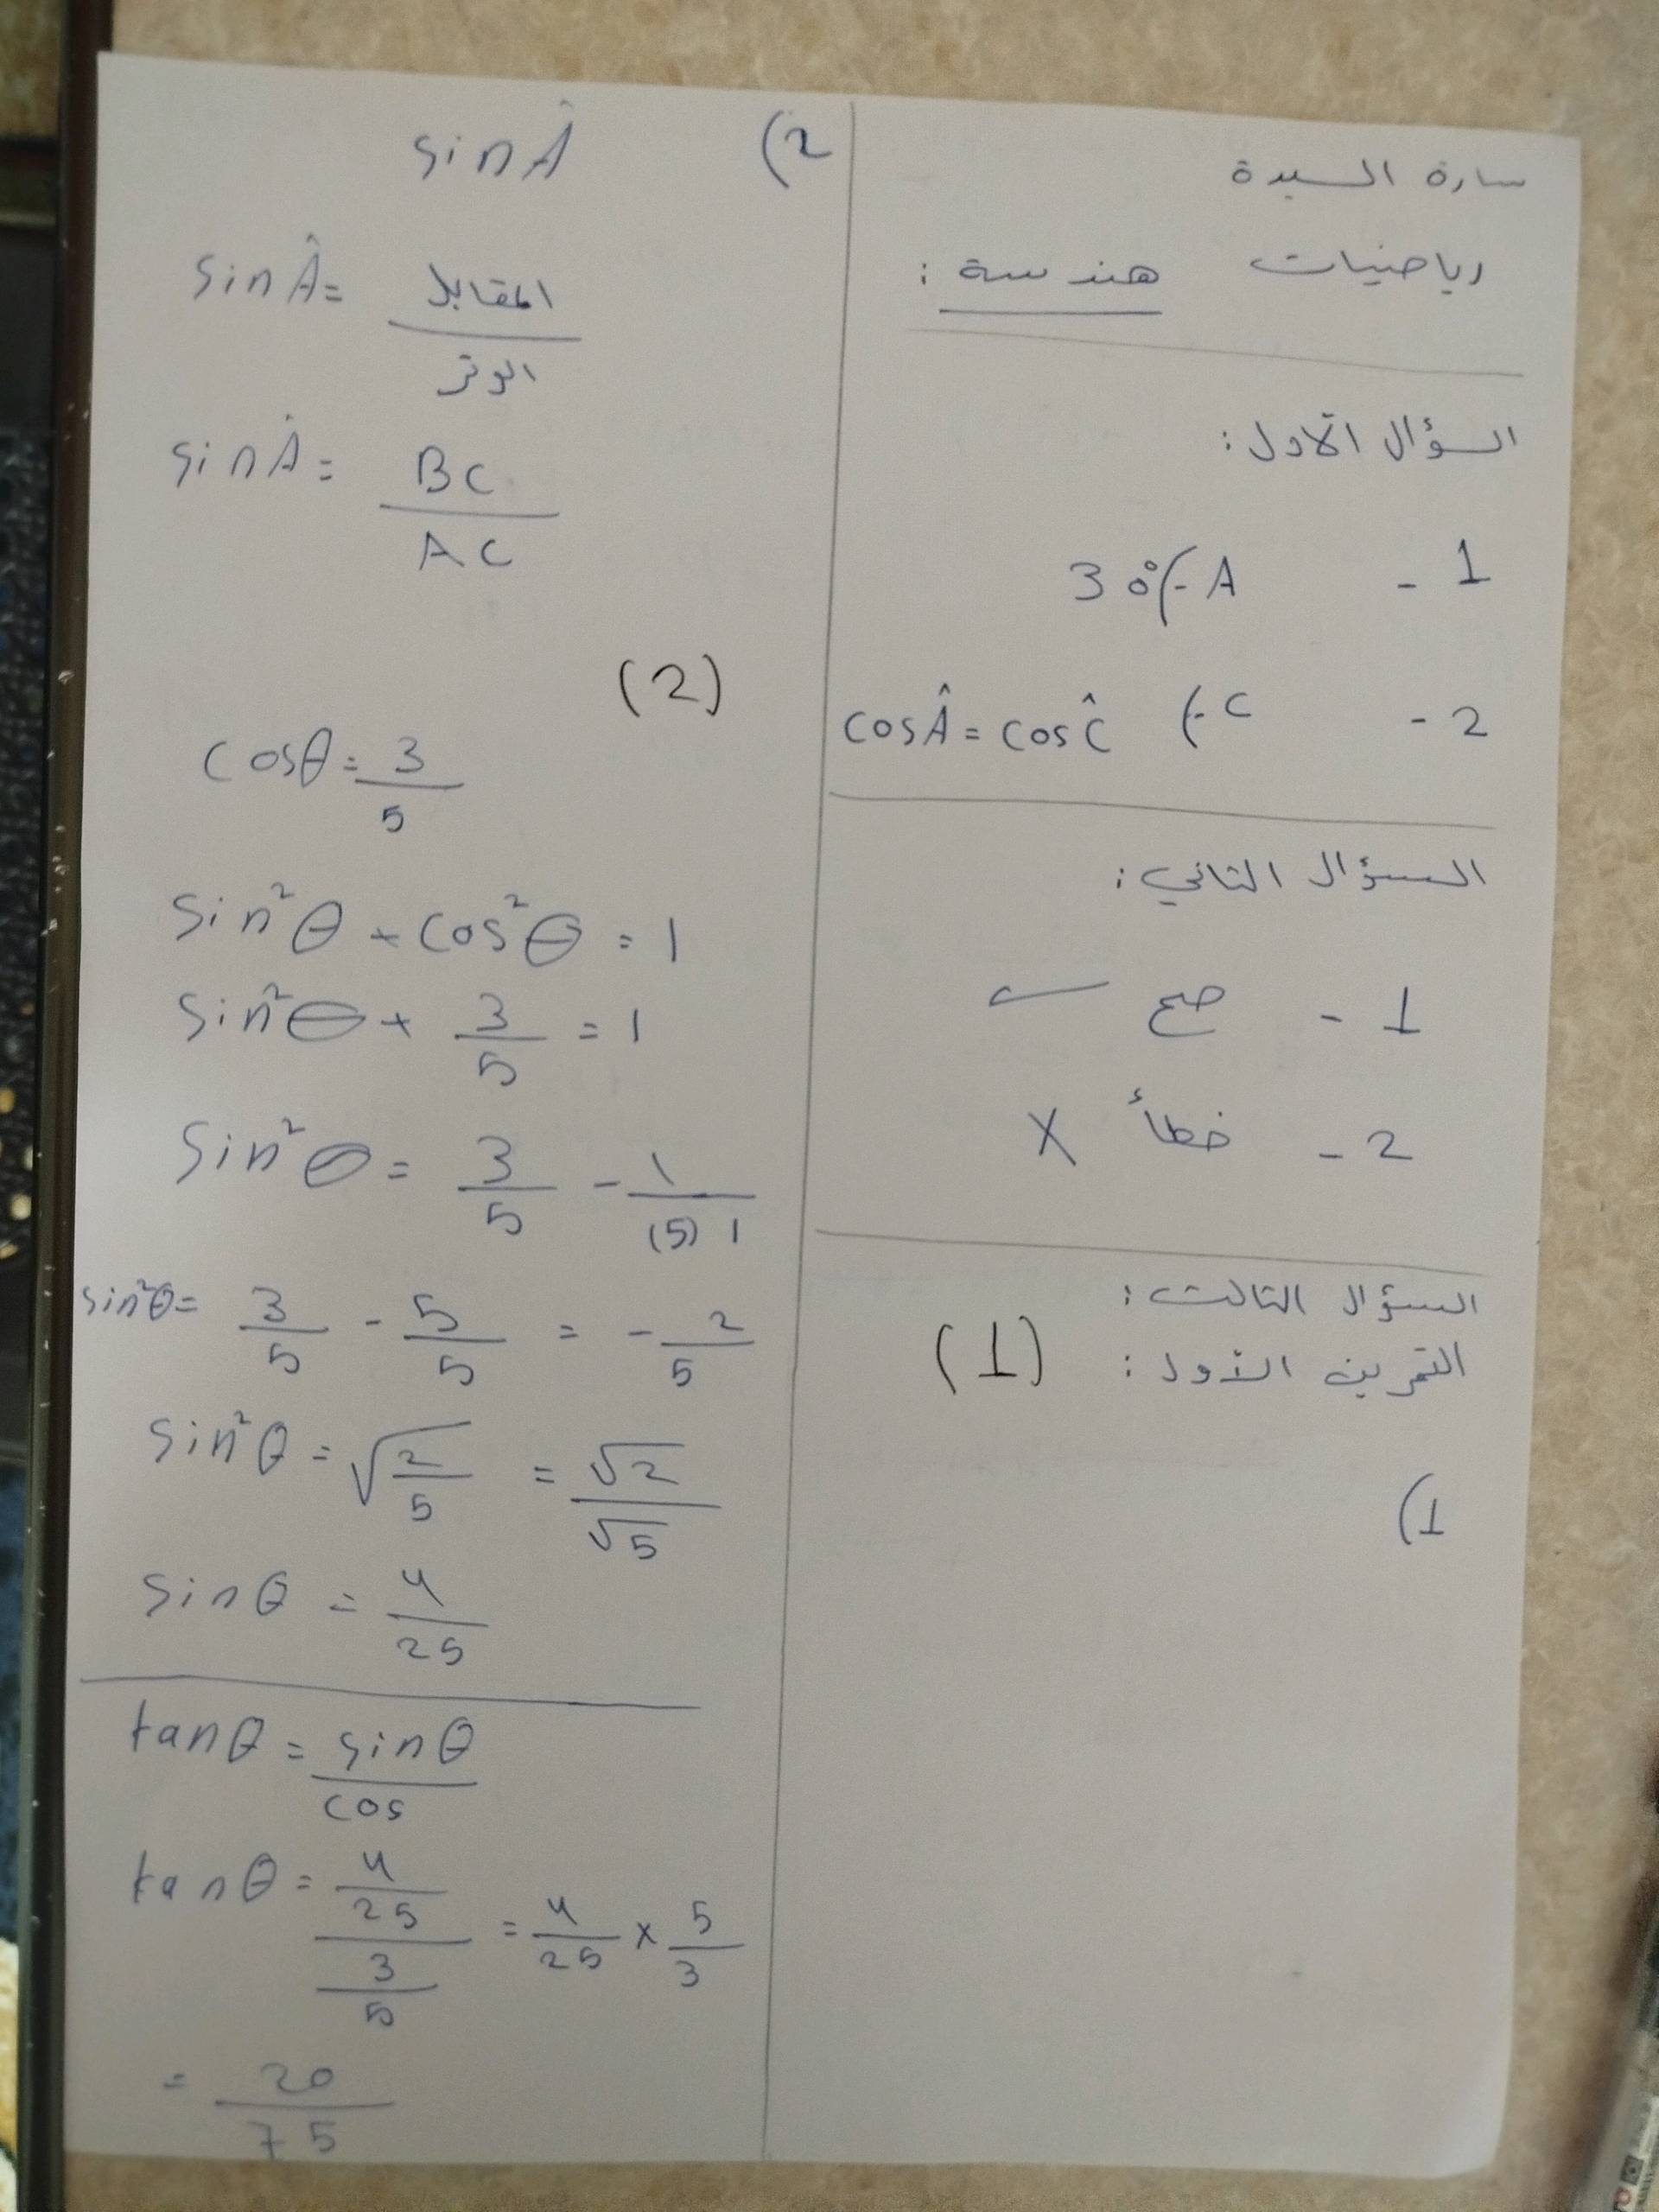 سارة السيدة
رياضيات هندسة :
السؤال الأول :
1 - A -) 30°
2 - C -) cosÂ = cosĈ
السؤال الثاني :
1 - صح ✓
2 - خطأ X
السؤال الثالث :
التمرين الأول : (1)
1)
2) sinÂ
sinÂ = المقابل / الوتر
sinÂ = BC / AC
(2)
cosθ = 3/5
sin²θ + cos²θ = 1
sin²θ + 3/5 = 1
sin²θ = 3/5 - 1/(5) 1
sin²θ = 3/5 - 5/5 = - 2/5
sin²θ = √(2/5) = √2/√5
sinθ = 4/25
tanθ = sinθ / cos
tanθ = (4/25) / (3/5) = 4/25 × 5/3
= 20/75